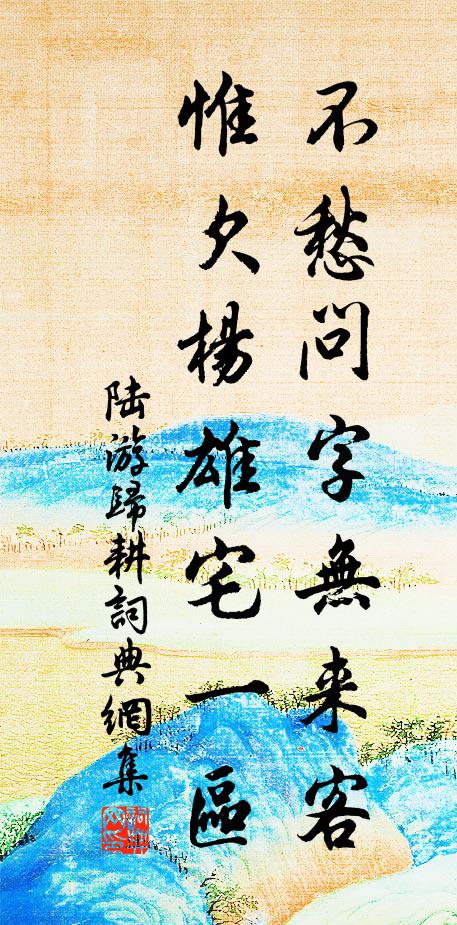 不愁問字無来客
惟欠楊雄宅一區
陆游歸耕詞典網集